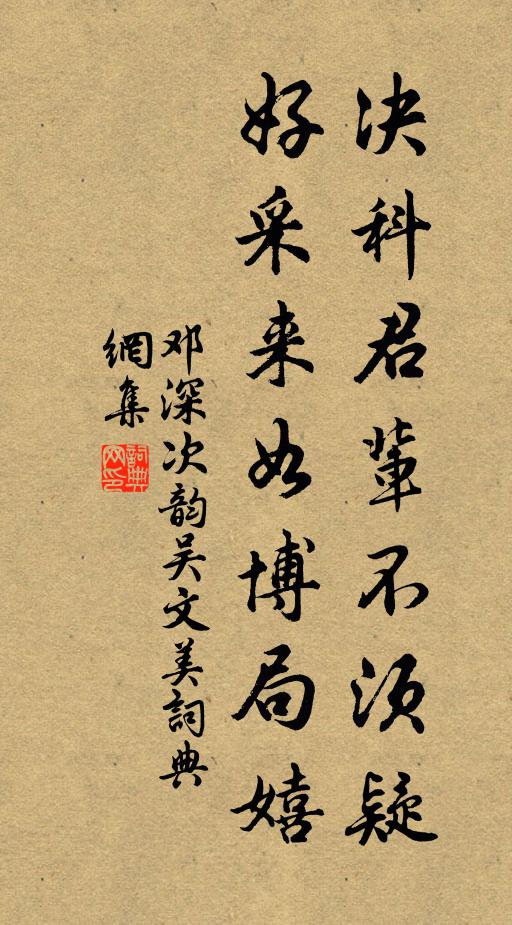 决科君辈不须疑
好采来如博局嬉
邓深次韵吴文美詞典
網集
詞典
网印